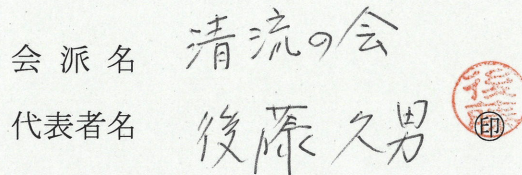 会派名 清流の会
代表者名 後藤久男 ㊞
後藤